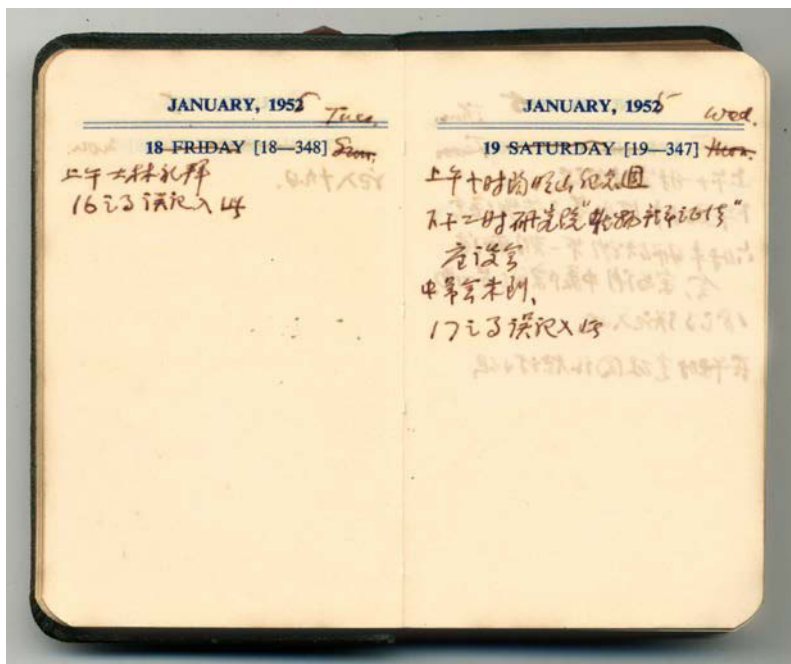 JANUARY, 1955 Tues.
18 FRIDAY [18—348] Sun.
上午士林礼拜
16之事误记入此
JANUARY, 1955 Wed.
19 SATURDAY [19—347] Mon.
上午十时阳明山纪念周
下午二时研究院"唯物辩证法"
座谈会
中常会未到、
17之事误记入此